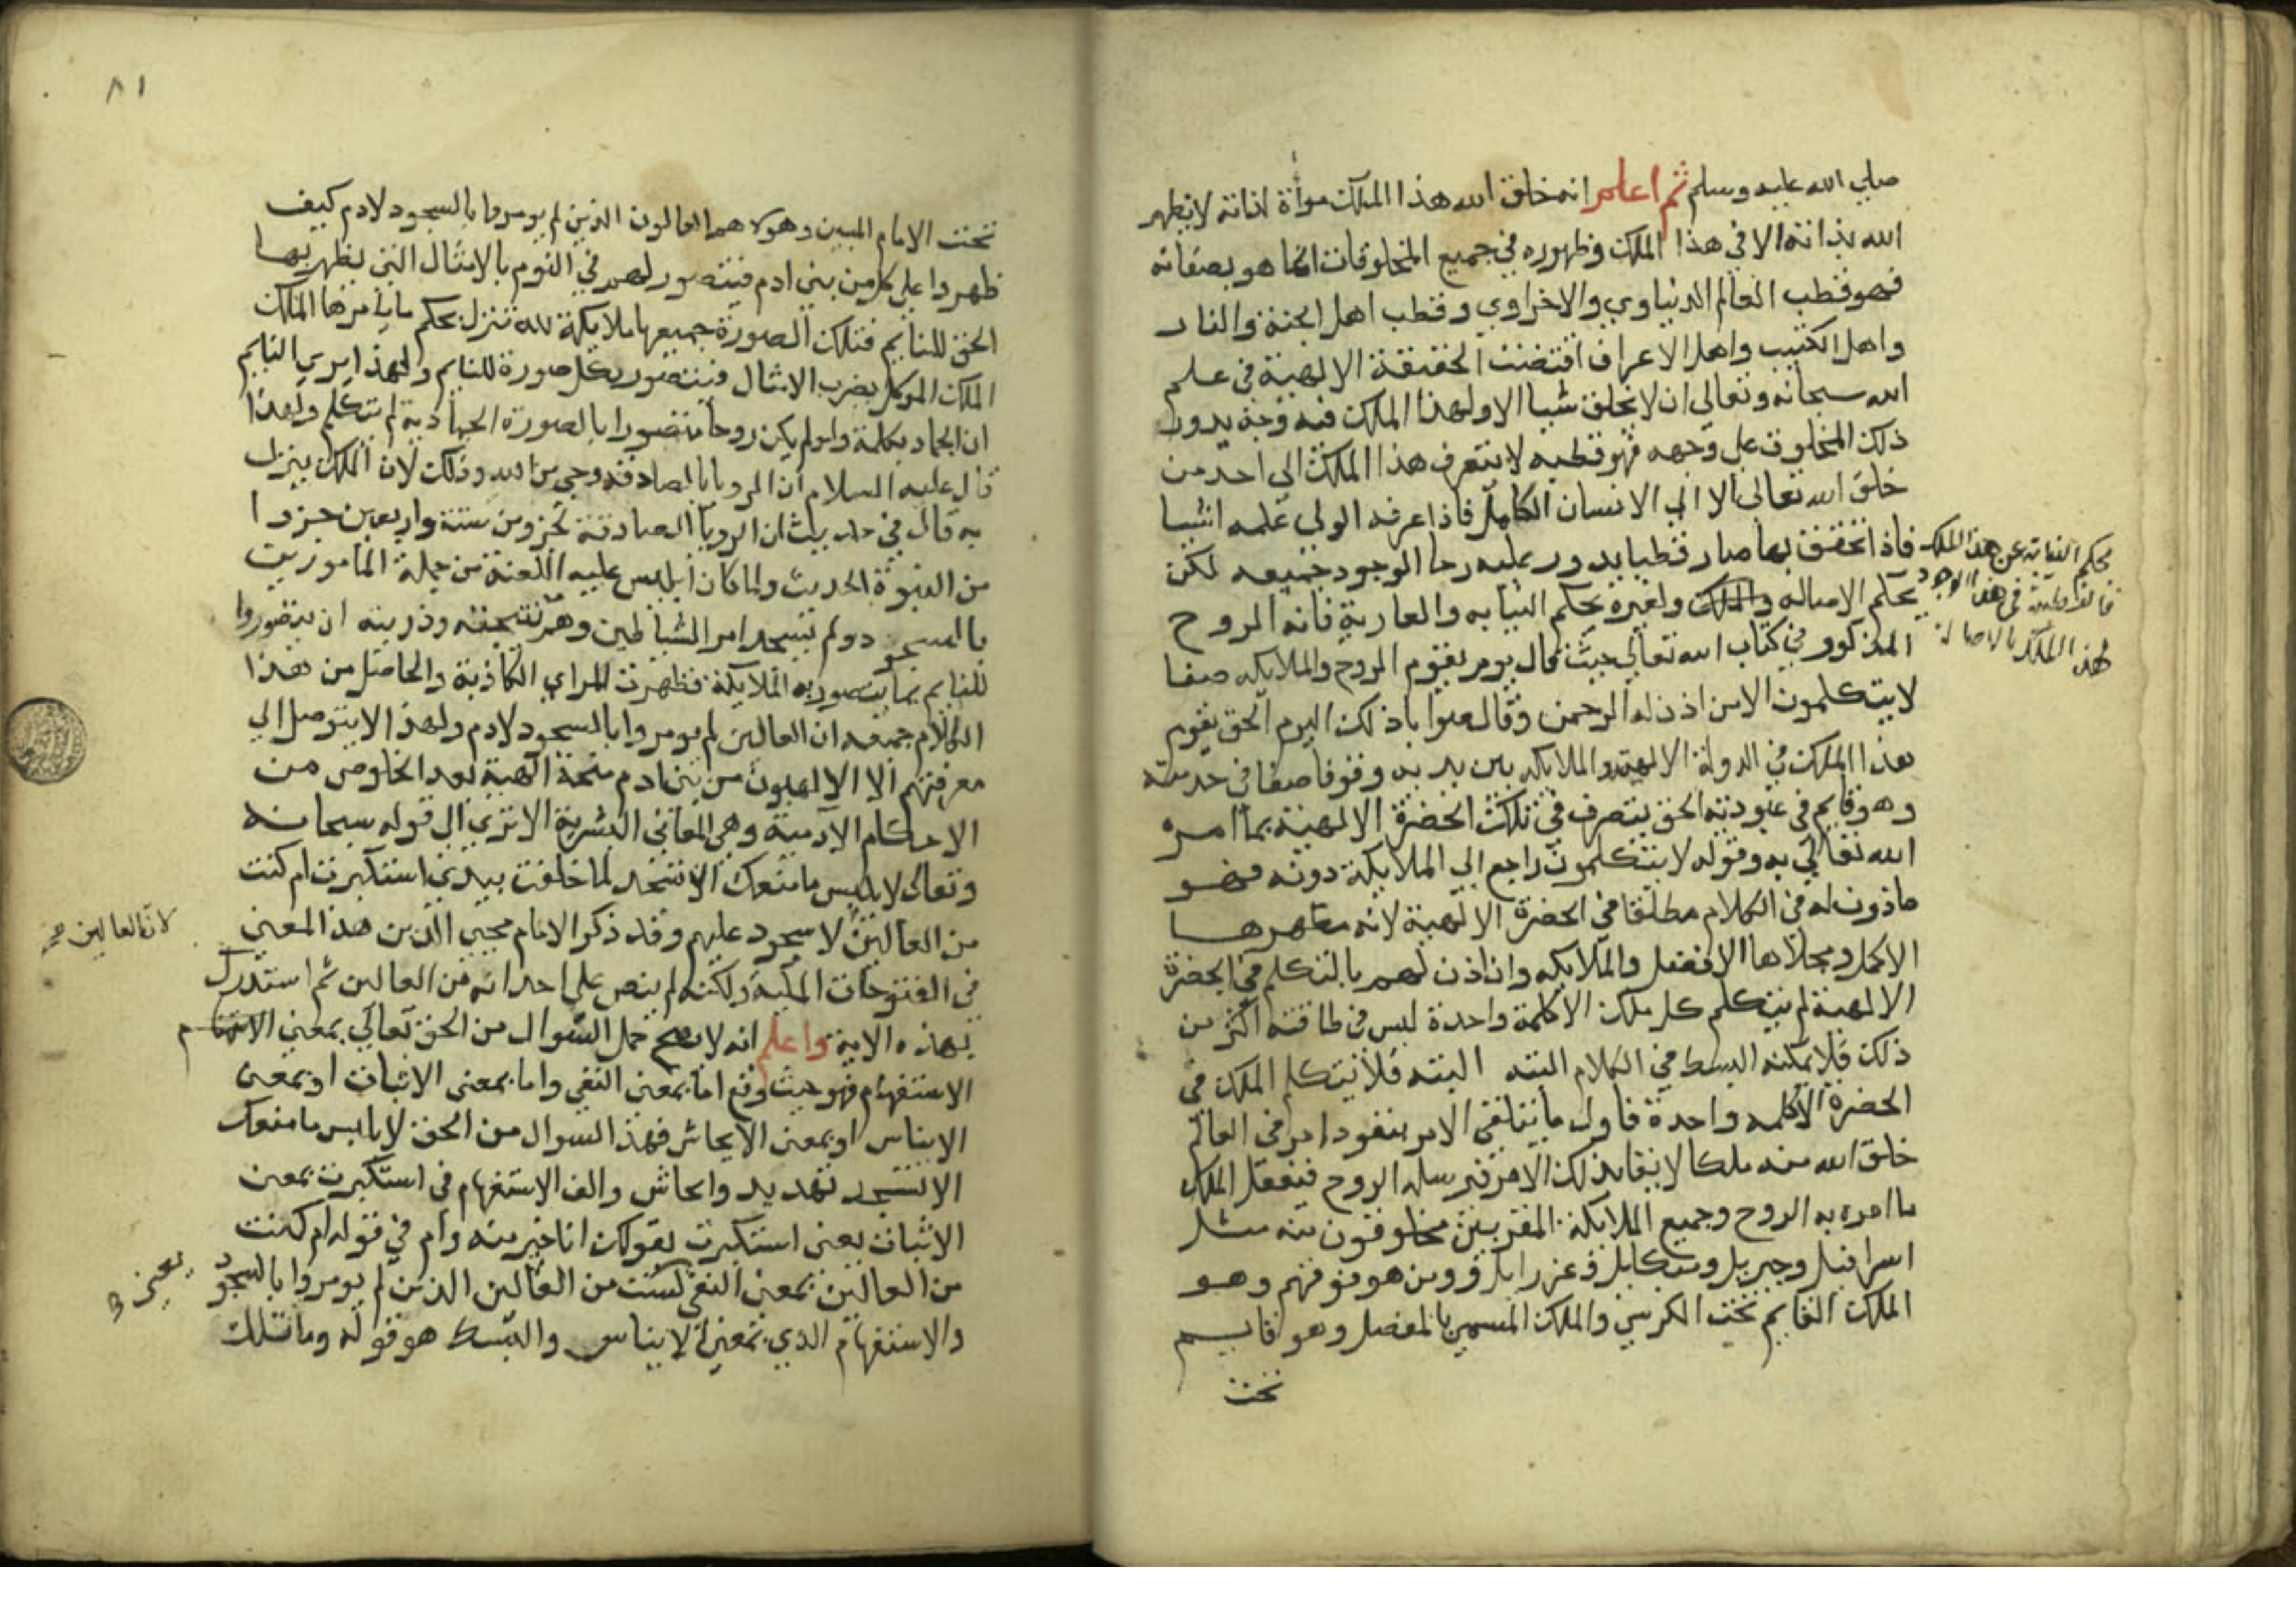 صلي الله عليه وسلم ثم اعلم انه خلق الله هذا الملك مرأة لذاته لا يظهر
الله بذاته الا في هذا الملك وظهوره في جميع المخلوقات انما هو بصفاته
فهو قطب العالم الدنياوي والاخراوي وقطب اهل الجنة والنار
واهل الكثيب واهل الاعراف اقتضت الحقيقة الالهية في علم
الله سبحانه وتعالي ان لا يخلق شيا الا ولهذا الملك فيه وجه يدور
ذلك المخلوق علي وجهه فهو قطبه لا يتعرف هذا الملك الي احد من
خلق الله تعالي الا الي الانسان الكامل فاذا عرفه الولي علمه اشيا
فاذا تحقق بها صار قطبا يدور عليه رحا الوجود جميعه لكن
بحكم النيابة عن هذا الملك
فالقطبية في هذا الوجود
لهذا الملك بالاصالة
بحكم الاصاله والملك ولغيره بحكم النيابه والعارية فانه الروح
المذكور في كتاب الله تعالي حيث قال يوم يقوم الروح والملايكه صفا
لا يتكلمون الا من اذن له الرحمن وقال صوابا ذلك اليوم الحق يقوم
هذا الملك في الدولة الالهية والملايكه بين يديه وقوفا صفا في خدمته
وهو قايم في عبودية الحق يتصرف في تلك الحضرة الالهية بما امره
الله تعالي به وقوله لا يتكلمون راجع الي الملايكة دونه فهو
ماذون له في الكلام مطلقا في الحضرة الالهية لانه مظهرها
الاكمل ومجلاها الافضل والملايكه وان اذن لهم بالتكلم في الحضرة
الالهية لم يتكلم كل ملك الا كلمة واحدة ليس في طاقته اكثر من
ذلك فلا يمكنه البسط في الكلام البته البته فلا يتكلم الملك في
الحضرة الا كلمه واحدة فاول ما يتلقي الامر بنفوذ امر في العالم
خلق الله منه ملكا لايقا بذلك الامر فيرسله الروح فيفعل الملك
ما امره به الروح وجميع الملايكة المقربين مخلوقون منه مثل
اسرافيل وجبريل وميكايل وعزرايل ومن هو فوقهم وهو
الملك القايم تحت الكرسي والملك المسمي بالمفصل وهو قايم
تحت
٨١
تحت الامام المبين وهولا هم العالون الذين لم يومروا بالسجود لادم كيف
ظهروا علي كل من بني ادم فيتصور لهم في النوم بالامثال التي يظهر بها
الحق للنايم فتلك الصورة جميعها ملايكة لله تنزل بحكم ما يامرها الملك
الملك الموكل بضرب الامثال فيتصور بكل صورة للنايم ولهذا يري النايم
ان الجماد يكلمه ولو لم يكن روحا متصورا بالصورة الجمادية لم يتكلم ولهذا
قال عليه السلام ان الرويا الصادقه وحي من الله وذلك لان الملك ينزل
به قال في حديث ان الرويا الصادقة جزو من ستة واربعين جزوا
من النبوة الحديث ولما كان ابليس عليه اللعنة من جملة المامورين
بالسجود ولم يسجد امر الشياطين وهم نتيجته وذريته ان يتصوروا
للنايم بما يتصور به الملايكة فظهرت المراي الكاذبة والحاصل من هذا
الكلام جميعه ان العالين لم يومروا بالسجود لادم ولهذا لا يتوصل الي
معرفتهم الا الالهيون من بني ادم منحة الهية بعد الخلوص من
الاحكام الآدمية وهي المعاني البشرية الا تري الي قوله سبحانه
وتعالي لابليس ما منعك ان تسجد لما خلقت بيدي استكبرت ام كنت
من العالين لا سجود عليهم وقد ذكر الامام محيي الدين هذا المعني
لان العالين
في الفتوحات المكية ولكنه لم ينص علي احد انه من العالين ثم استدرك
بهذه الاية واعلم انه لا يصح حمل السوال من الحق تعالي بمعني
الاستفهام فهو حيث وقع اما بمعني النفي واما بمعني الاثبات او بمعني
الايناس او بمعني الايحاش فهذا السوال من الحق لابليس ما منعك
الا تسجد تهديد وايحاش والف الاستفهام في استكبرت بمعني
الاثبات يعني استكبرت بقولك انا خير منه وام في قوله ام كنت
من العالين بمعني النفي لست من العالين الذين لم يومروا بالسجود
يعني
والاستفهام الذي بمعني الايناس والبسط هو قوله وما تلك